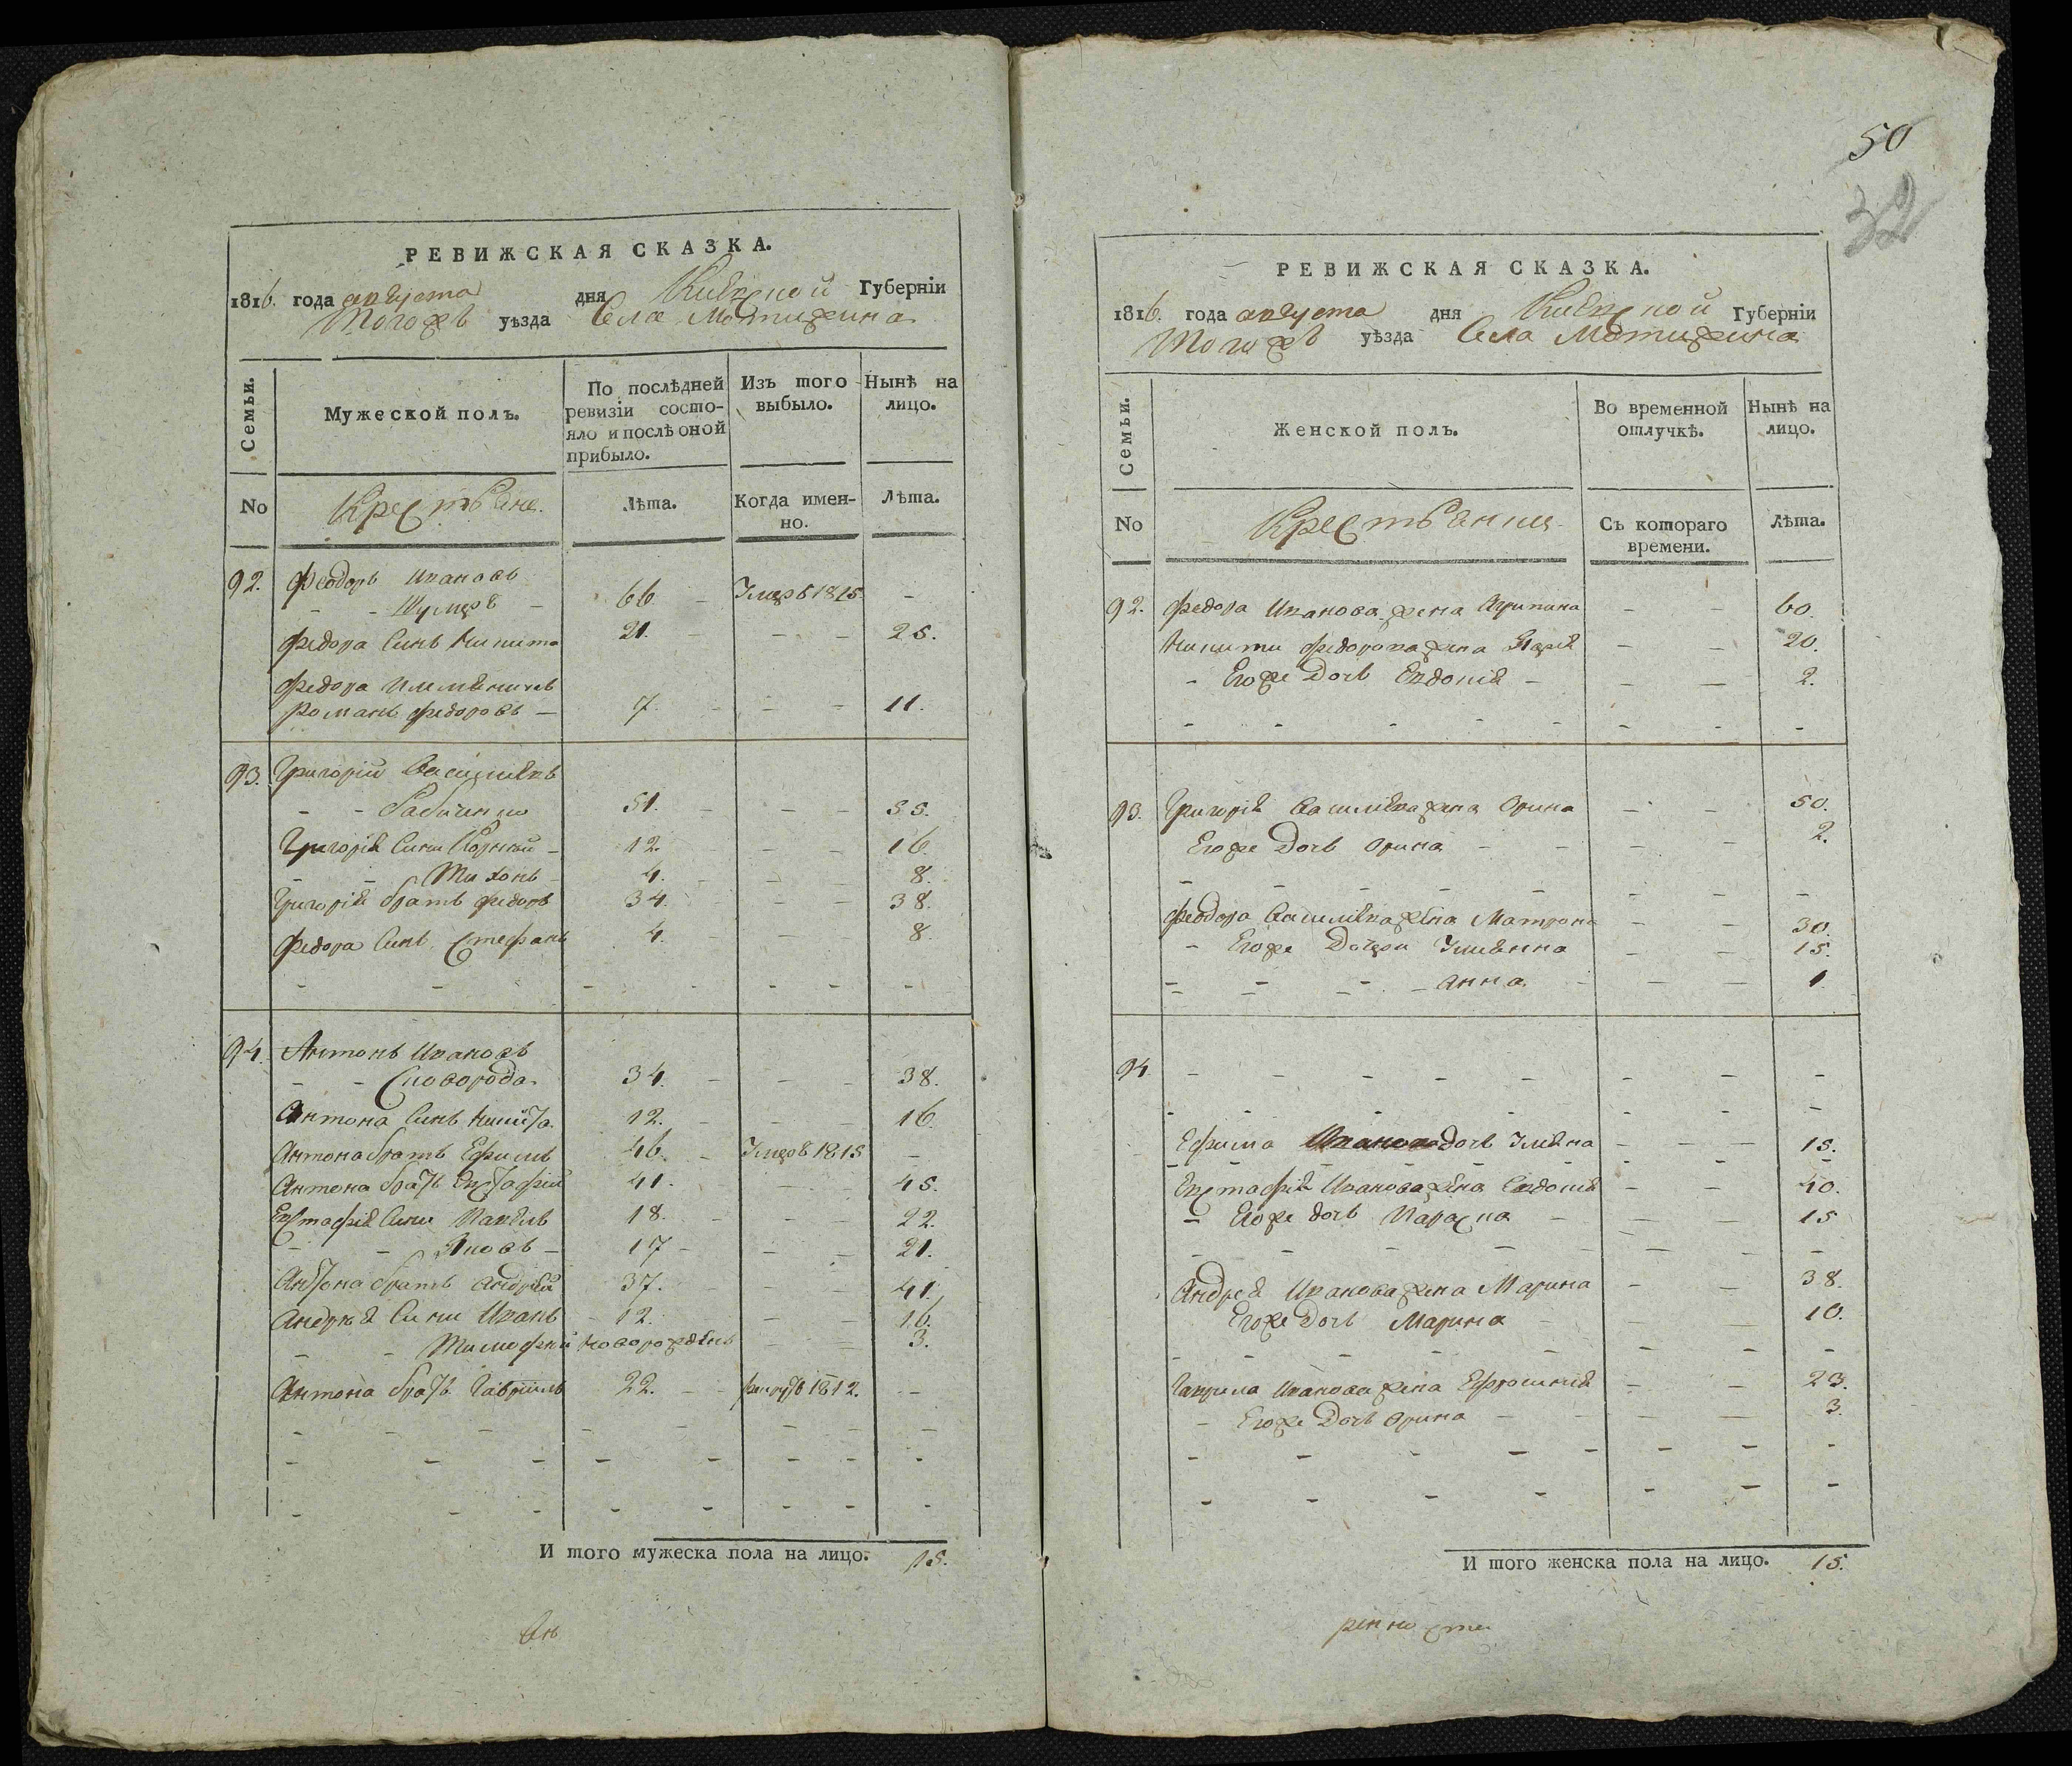 РЕВИЖСКАЯ СКАЗКА.
1816. года августа дня Киевской Губерніи
Тогожъ уѣзда Села Мотижина
Семьи.
Мужеской полъ.
По послѣдней ревизіи состо-
яло и послѣ оной
прибыло.
Изъ того
выбыло.
Нынѣ на
лицо.
No
Крестьяне.
Лѣта.
Когда имен-
но.
Лѣта.
92. Феодоръ Ивановъ
66 Умеръ 1815 -
Федора Синъ Никита 21. - - - 25.
Федора племѣникъ
Романъ Федоровъ - 7. - - - 11.
93. Григорій Василіевъ
51. - - - 55.
Григорія Сини Корній - 12. - - 16
- - Тихонъ - 4. - - - 8.
Григорія братъ Федоръ 34. - - - 38.
Федора Синъ Стефанъ 4. - - 8.
94. Антонъ Ивановъ
- - Сковорода 34. - - - 38.
Антона Синъ Никита. 12. - - - 16.
Антона братъ Ефимъ 46. - Умеръ 1815 -
Антона братъ Евстафій 41. - - - 45.
Евстафія Сини Павелъ 18. - - - 22.
- - Яковъ - 17 - - - 21.
Антона братъ Андрей 37. - - 41.
Андрея Сини Иванъ - 12. - - 16.
- - Тимофей новорожденъ - - 3.
Антона братъ Гавріилъ 22. - - рекрутъ 1812. - -
И того мужеска пола на лицо. 15.
50
32
РЕВИЖСКАЯ СКАЗКА.
1816. года августа дня Киевской Губерніи
Тогожъ уѣзда Села Мотижина
Семьи.
Женской полъ.
Во временной
отлучкѣ.
Нынѣ на
лицо.
No
Крестьянки
Съ котораго
времени.
Лѣта.
92. Федора Иванова жена Агрипина - - 60.
Никити Федорова жена - - 20.
- Егоже Дочь Евдокія - - - 2.
93. Григорія Василіева жена Орина - - 50.
Егоже Дочь Орина - - - - 2.
Феодора Василіева жена Матрона - - 30.
- Егоже Дочери Уліянна - - 15.
- - - - Анна. - - - 1
94. - - - - - - - -
Ефима Дочь Уліяна - - - 15.
Евстафія Иванова жена Евдокія - - 40.
- Егоже дочь Параска - - - 15
Андрея Иванова жена Марина - - 38.
Егоже Дочь Марина - - - 10.
Гаврила Иванова жена Ефросинія - - 23.
- Егоже Дочь Орина - - - - 3.
И того женска пола на лицо. 15.